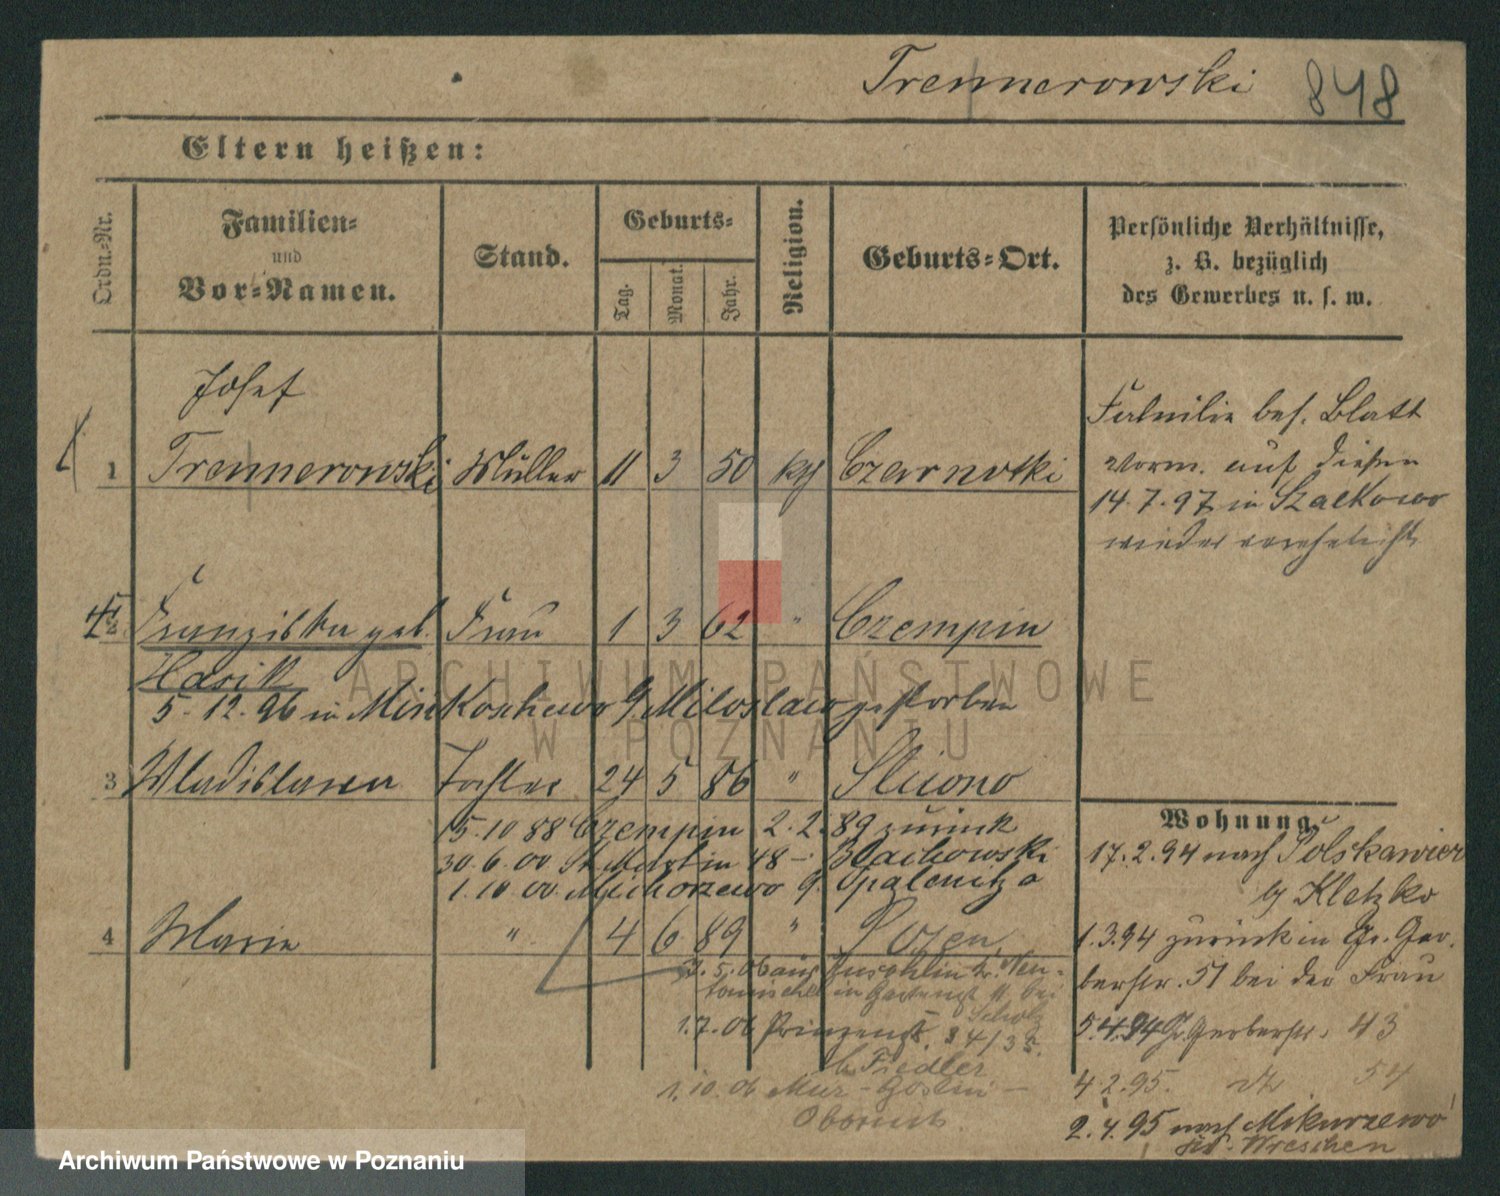 Trennerowski 848
Eltern heißen:
Ordn.-Nr.
Familien-
und
Vor-Namen.
Stand.
Geburts-
Tag.
Monat.
Jahr.
Religion.
Geburts-Ort.
Persönliche Verhältnisse,
z. B. bezüglich
des Gewerbes u. s. w.
Josef
1 Trennerowski Müller 11 3 50 kth Czarnotki
Familie bes. Blatt
Vorm. auf diesen
14.7.97 in Szalkowo
wieder verehelicht
2 Franziska geb. Frau 1 3 62 " Czempin
Hasik
5.12.96 in Mikoschewo b/ Miloslaw gestorben
3 Wladislawa Tochter 24 5 86 " Sluono
15.10 88 Czempin 2.2.89 zurück
30.6.00 St. Martin 48 – Blachowski
1.10.00 Michorzewo b/ Opalenitza
4 Marie " 4 6 89 " Posen
5.06 aus Kr. Neu-
tomischel in 11 bei
Scholz
1.7.06 Prinzenst. 34/35.
b. Fiedler
1.10.06 Mur-Goslin –
Obornik
Wohnung.
17.2.94 nach Polskawies
b/ Kletzko
1.3.94 zurück in Gr. Ger-
berstr. 51 bei der Frau
5.4.94 Gr. Gerberstr. 43
4.2.95. dto 54
2.4.95 nach Mikurzewo
Kr. Wreschen
ARCHIWUM PAŃSTWOWE
W POZNANIU
Archiwum Państwowe w Poznaniu